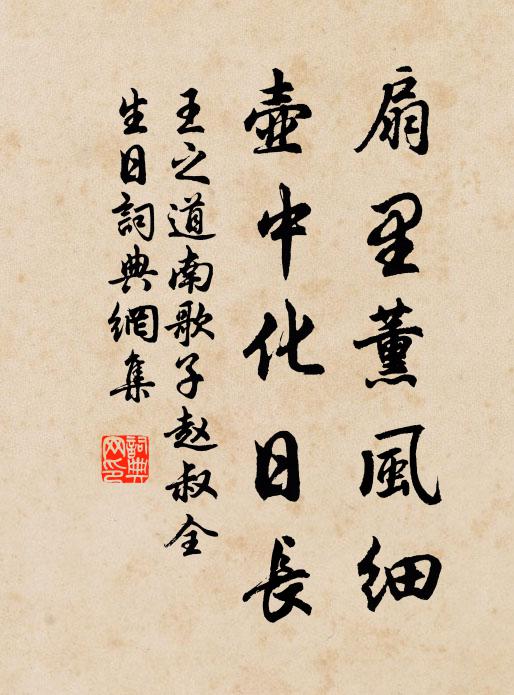 扇里薰風細
壺中化日長
王之道南歌子赵叔全
生日詞典網集
詞典
网印